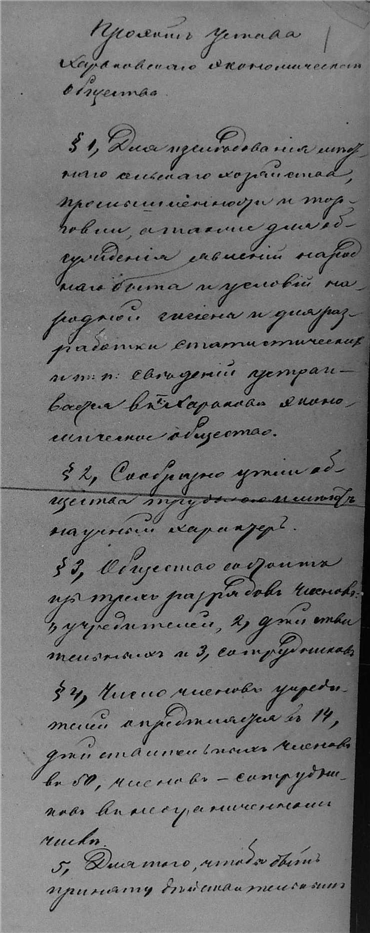 Проэктъ Устава
Харьковскаго экономическаго
общества.
§ 1, Для изслѣдованія мѣст-
наго сельскаго хозяйства,
промышленности и тор-
говли, а также для об-
сужденія явленій народ
наго быта и условій на-
родной гигіены и для раз-
работки статистическихъ
и т. п. свѣденій устраи-
вается въ Харьковѣ эконо-
мическое общество.
§ 2, Сообразно цѣли об-
щества труды его имѣютъ
научный характеръ.
§ 3, Общество состоитъ
изъ трехъ разрядовъ членовъ:
1, учредителей, 2, дѣйстви
тельныхъ и 3, сотрудниковъ
§ 4, Число членовъ учреди-
телей опредѣляется въ 14,
дѣйствительныхъ членовъ
въ 50, членовъ – сотрудни-
ковъ въ неограниченномъ
числѣ.
5, Для того, чтобы быть
приняту дѣйствительнымъ